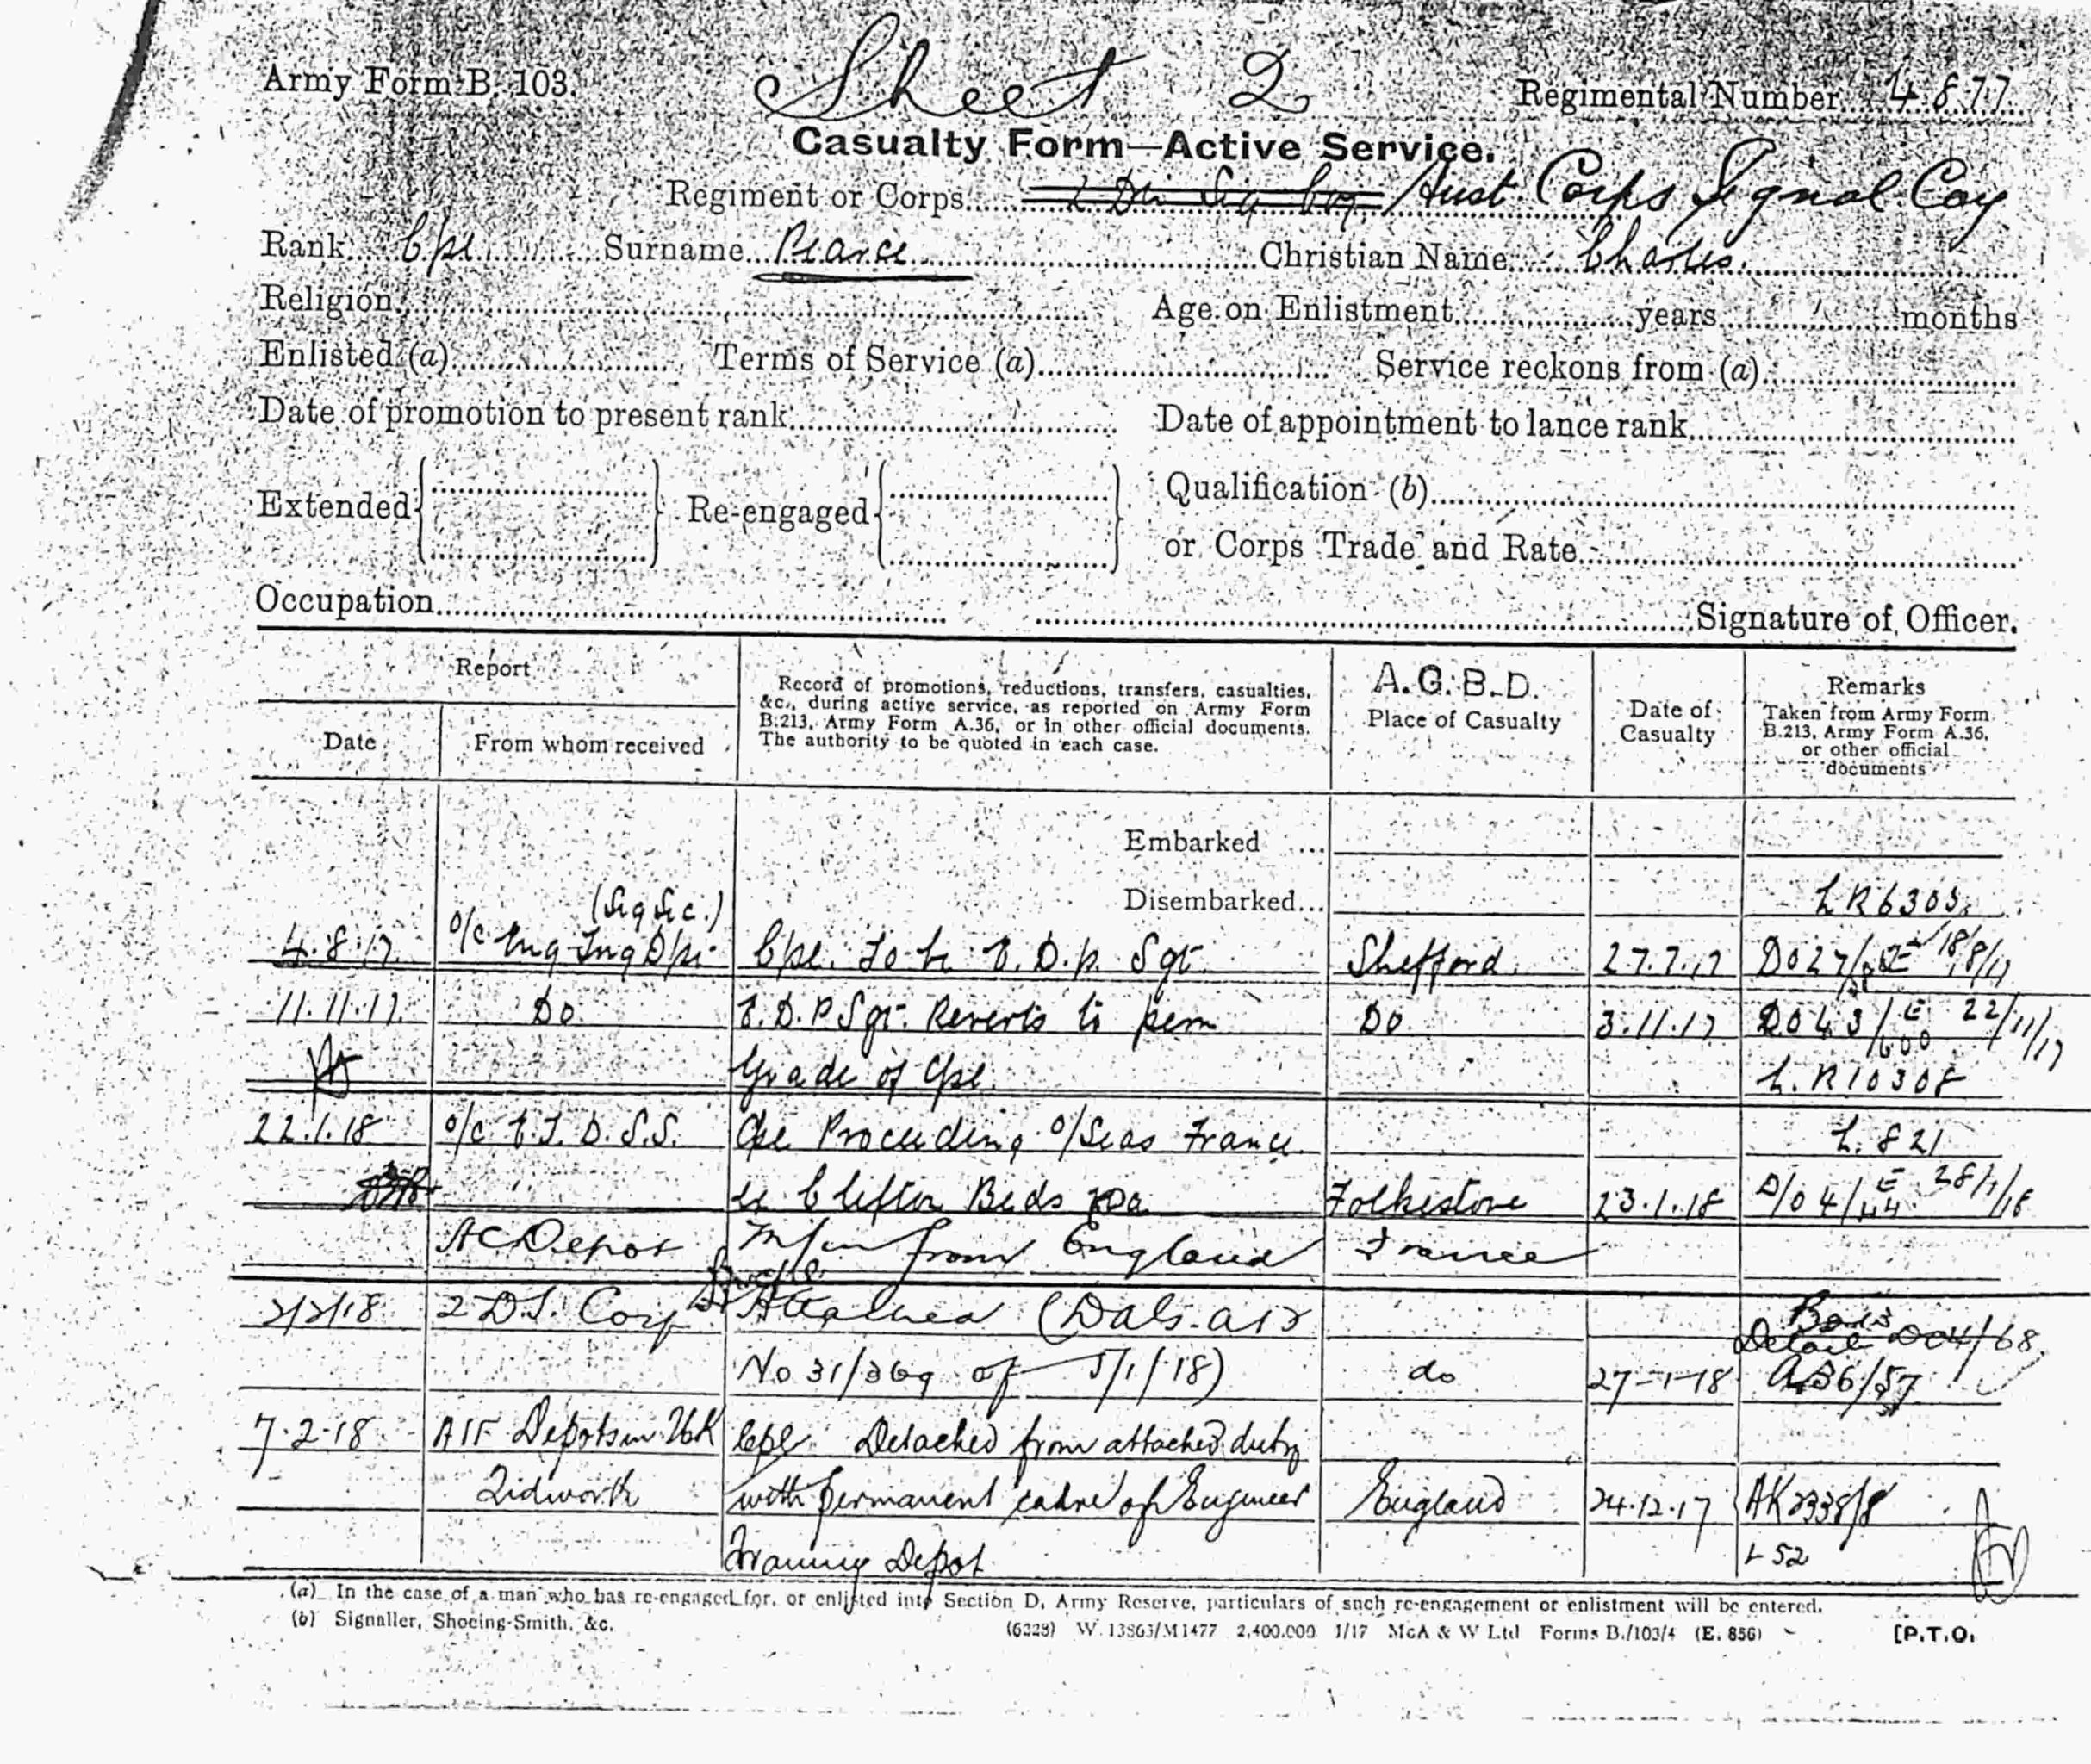 Army Form B. 103.
Sheet 2
Regimental Number 4877
Casualty Form—Active Service.
Regiment or Corps 2 Div Sig Coy Aust Corps Signal Coy
Rank Cpl Surname Pearce Christian Name Charles
Religion Age on Enlistment years months
Enlisted (a) Terms of Service (a) Service reckons from (a)
Date of promotion to present rank Date of appointment to lance rank
Extended Re-engaged Qualification (b)
or Corps Trade and Rate
Occupation Signature of Officer.
Report
Date
From whom received
Record of promotions, reductions, transfers, casualties,
&c., during active service, as reported on Army Form
B.213, Army Form A.36, or in other official documents.
The authority to be quoted in each case.
A.G.B.D.
Place of Casualty
Date of
Casualty
Remarks
Taken from Army Form
B.213, Army Form A.36,
or other official
documents
Embarked ...
Disembarked...
LR6305
(Sig Sec.)
4.8.17 O/C Eng Tng Dpt Cpl. to be E.D.P. Sgt Shefford 27.7.17 DO27/ 18/8/17
11.11.17. Do E.D.P Sgt. Reverts to perm Do 3.11.17 DO43/E 22/11/17
600
Grade of Cpl. L.R10308
22.1.18 O/C E.T.D.S.S. Cpl Proceeding O/Seas France L. 821
Clifton Beds Folkestone 23.1.18 D/O 4/E 28/1/18
44
AGDepot M/in from England France
2/2/18 2 D.S. Coy Attached (DALS. AIF Details DO4/68
No 31/369 of 5/1/18) do 27-1-18 AB6/57
7.2.18 AIF Depots in UK Cpl Detached from attached duty
Tidworth with permanent cadre of Engineer England 24.12.17 AK2338/8
Training Depot L 52
(a) In the case of a man who has re-engaged for, or enlisted into Section D, Army Reserve, particulars of such re-engagement or enlistment will be entered.
(b) Signaller, Shoeing-Smith, &c.
(6223) W. 13863/M1477 2,400,000 1/17 McA & W Ltd Forms B./103/4 (E. 856)
[P.T.O.